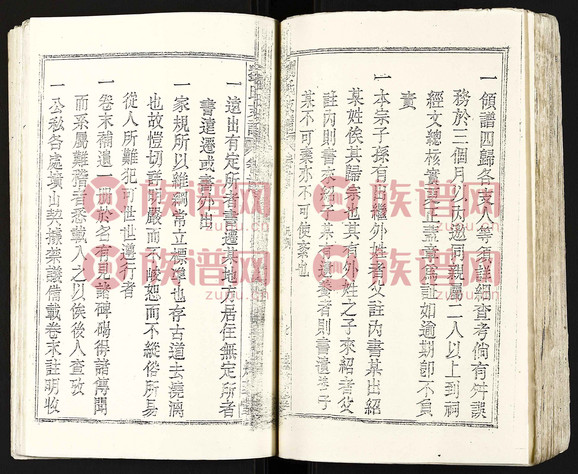 一領譜回歸各支人等須詳細查考倘有舛誤
務於三個月以內邀同親屬二人以上到祠
經文總核實更正蓋章為註如逾期卽不負
責
一本宗子孫有出繼外姓者父註內書某出紹
某姓俟其歸宗也其有外姓之子來紹者父
註內則書來紹子某有遺養者則書遺養子
某不可棄亦不可使紊也
一遠出有定所者書遷某地方居住無定所者
書遺遷或書外出
一家規所以維綱常立標準也存古道去澆漓
也故愷切詳明嚴而不峻恕而不縱俗所易
從人所難犯可世世遵行者
一卷末補遺一冊於名有見諸碑碣得諸傳聞
而系屬難稽者悉載入之以俟後人查攷
一公私各處墳山契據榮議備載卷末註明收
族谱网
zupu.cn
族谱网
zupu.cn
族谱网
zupu.cn
族谱网
zupu.cn